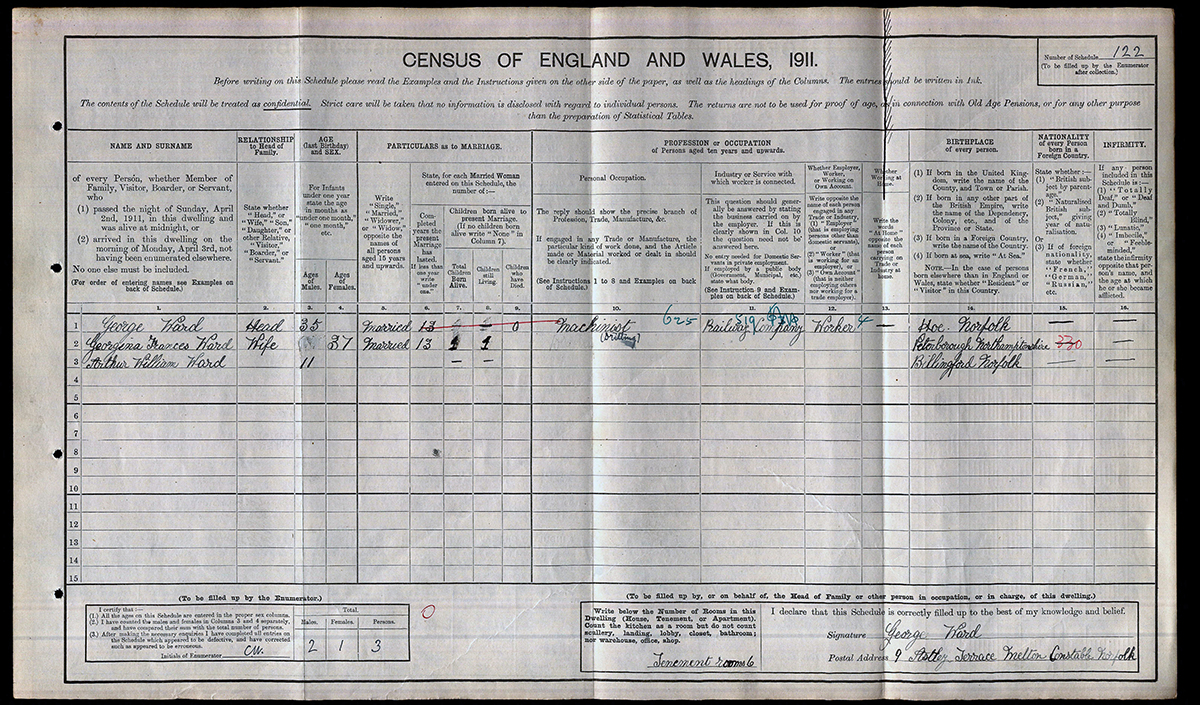 CENSUS OF ENGLAND AND WALES, 1911.
Number of Schedule 122
(To be filled up by the Enumerator
after collection.)
Before writing on this Schedule please read the Examples and the Instructions given on the other side of the paper, as well as the headings of the Columns. The entries should be written in Ink.
The contents of the Schedule will be treated as confidential. Strict care will be taken that no information is disclosed with regard to individual persons. The returns are not to be used for proof of age, as in connection with Old Age Pensions, or for any other purpose
than the preparation of Statistical Tables.
NAME AND SURNAME
of every Person, whether Member of
Family, Visitor, Boarder, or Servant,
who
(1) passed the night of Sunday, April
2nd, 1911, in this dwelling and
was alive at midnight, or
(2) arrived in this dwelling on the
morning of Monday, April 3rd, not
having been enumerated elsewhere.
No one else must be included.
(For order of entering names see Examples on
back of Schedule.)
RELATIONSHIP
to Head of
Family.
State whether
"Head," or
"Wife," "Son,"
"Daughter," or
other Relative,
"Visitor,"
"Boarder," or
"Servant."
AGE
(last Birthday)
and SEX.
For Infants
under one year
state the age
in months as
"under one month,"
"one month,"
etc.
Ages
of
Males.
Ages
of
Females.
PARTICULARS as to MARRIAGE.
Write
"Single,"
"Married,"
"Widower,"
or "Widow,"
opposite the
names of
all persons
aged 15 years
and upwards.
State, for each Married Woman
entered on this Schedule, the
number of :—
Completed
years the
present
Marriage
has
lasted.
If less than
one year
write
"under
one."
Children born alive to
present Marriage.
(If no children born
alive write "None" in
Column 7).
Total
Children
Born
Alive.
Children
still
Living.
Children
who
have
Died.
PROFESSION or OCCUPATION
of Persons aged ten years and upwards.
Personal Occupation.
The reply should show the precise branch of
Profession, Trade, Manufacture, &c.
If engaged in any Trade or Manufacture, the
particular kind of work done, and the Article
made or Material worked or dealt in should
be clearly indicated.
(See Instructions 1 to 8 and Examples on back
of Schedule.)
Industry or Service with
which worker is connected.
This question should generally
be answered by stating
the business carried on
by the employer. If this is
clearly shown in Col. 10
the question need not be
answered here.
No entry needed for Domestic Servants
in private employment.
If employed by a public body
(Government, Municipal, etc.)
state what body.
(See Instruction 9 and Examples
on back of Schedule.)
Whether Employer,
Worker,
or Working on
Own Account.
Write opposite the
name of each person
engaged in any
Trade or Industry,
(1) "Employer"
(that is employing
persons other than
domestic servants),
or
(2) "Worker" (that
is working for an
employer), or
(3) "Own Account"
(that is neither
employing others nor
working for a
trade employer).
Whether
Working at
Home.
Write the
words
"At Home"
opposite the
name of each
person
carrying on
Trade or
Industry at
home.
BIRTHPLACE
of every person.
(1) If born in the United Kingdom,
write the name of the
County, and Town or Parish.
(2) If born in any other part of
the British Empire, write
the name of the Dependency,
Colony, etc., and of the
Province or State.
(3) If born in a Foreign Country,
write the name of the Country.
(4) If born at sea, write "At Sea."
NOTE.—In the case of persons
born elsewhere than in England or
Wales, state whether "Resident" or
"Visitor" in this Country.
NATIONALITY
of every Person
born in a
Foreign Country.
State whether :—
(1) "British subject
by parentage."
(2) "Naturalised
British subject,"
giving
year of naturalisation.
Or
(3) If of foreign
nationality,
state whether
"French,"
"German,"
"Russian,"
etc.
INFIRMITY.
If any person
included in this
Schedule is :—
(1) "Totally
Deaf," or "Deaf
and Dumb,"
(2) "Totally
Blind,"
(3) "Lunatic,"
(4) "Imbecile,"
or "Feeble-minded,"
state the infirmity
opposite that person's
name, and
the age at which
he or she became
afflicted.
1. 2. 3. 4. 5. 6. 7. 8. 9. 10. 11. 12. 13. 14. 15. 16.
1 George Ward Head 35 Married 13 1 1 0 Machinist 625 Railway Company Worker 4 — Hoe. Norfolk — —
(Drilling)
2 Georgina Frances Ward Wife 37 Married 13 1 1 Peterborough Northamptonshire 330 —
3 Arthur William Ward 11 — — Billingford Norfolk — —
4
5
6
7
8
9
10
11
12
13
14
15
(To be filled up by the Enumerator.)
I certify that :—
(1.) All the ages on this Schedule are entered in the proper sex columns.
(2.) I have counted the males and females in Columns 3 and 4 separately,
and have compared their sum with the total number of persons.
(3.) After making the necessary enquiries I have completed all entries on
the Schedule which appeared to be defective, and have corrected
such as appeared to be erroneous.
Initials of Enumerator
Total.
Males. Females. Persons.
2 1 3
0
(To be filled up by, or on behalf of, the Head of Family or other person in occupation, or in charge, of this dwelling.)
Write below the Number of Rooms in this
Dwelling (House, Tenement, or Apartment).
Count the kitchen as a room but do not count
scullery, landing, lobby, closet, bathroom;
nor warehouse, office, shop.
Tenement rooms 6
I declare that this Schedule is correctly filled up to the best of my knowledge and belief.
Signature George Ward
Postal Address 9 Astley Terrace Melton Constable Norfolk